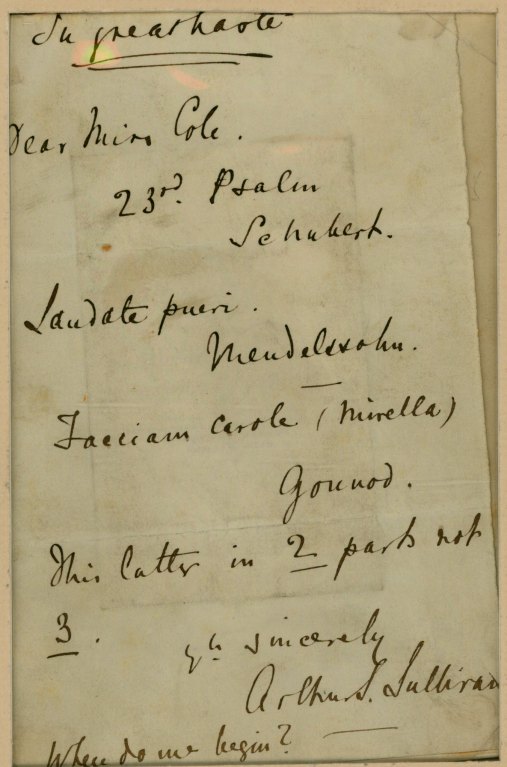 In great haste
Dear Miss Cole.
23rd. Psalm
Schubert.
Laudate pueri.
Mendelssohn.
Facciam carole (Mirella)
Gounod.
This latter in 2 parts not
3.
Yrs sincerely
Arthur S. Sullivan
When do we begin?